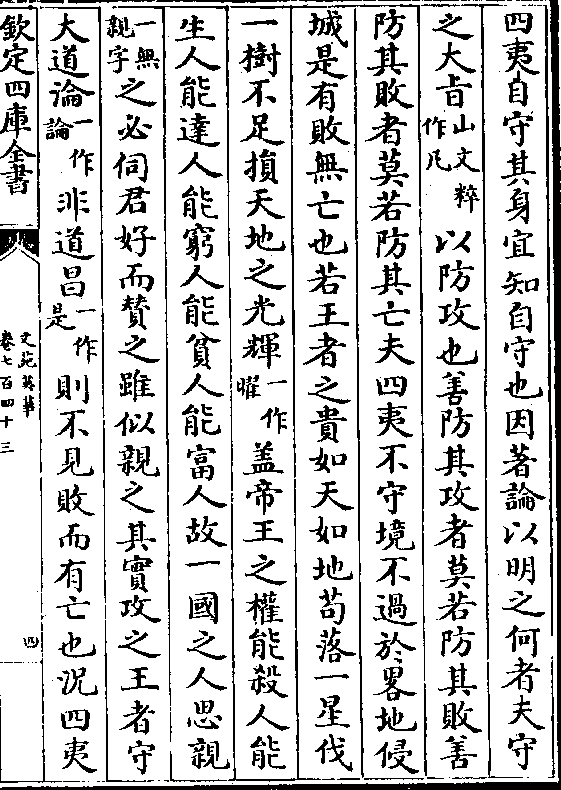 四夷自守其身宜知自守也因著論以明之何者夫守
之大㫖山文粹作凡以防攻也善防其攻者莫若防其敗善
防其敗者莫若防其亡夫四夷不守境不過於畧地侵
城是有敗無亡也若王者之貴如天如地苟落一星伐
一樹不足損天地之光輝一作曜盖帝王之權能殺人能
生人能達人能窮人能貧人能富人故一國之人思親
一無親字之必伺君好而賛之雖似親之其實攻之王者守
大道論一作論非道昌一作是則不見敗而有亡也況四夷
欽定四庫全書
文苑英華
卷七百四十三
四